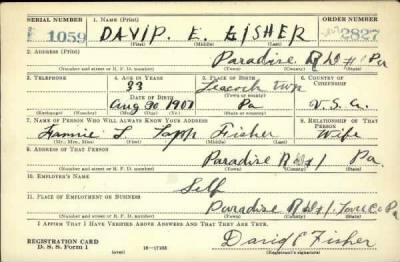 SERIAL NUMBER 1. NAME (Print) ORDER NUMBER
1059 DAVID. E. FISHER 2827
(First) (Middle) (Last)
2. ADDRESS (Print)
Paradise R D # 1 Pa
(Number and street or R. F. D. number) (Town) (County) (State)
3. TELEPHONE 4. AGE IN YEARS 5. PLACE OF BIRTH 6. COUNTRY OF CITIZENSHIP
33 Leacock twp
DATE OF BIRTH (Town or county)
Aug 30 1907 Pa U.S.A.
(Exchange) (Number) (Mo.) (Day) (Yr.) (State or country)
7. NAME OF PERSON WHO WILL ALWAYS KNOW YOUR ADDRESS 8. RELATIONSHIP OF THAT PERSON
Fannie L Lapp Fisher Wife
(Mr., Mrs., Miss) (First) (Middle) (Last)
9. ADDRESS OF THAT PERSON
Paradise R D # 1 Pa.
(Number and street or R. F. D. number) (Town) (County) (State)
10. EMPLOYER'S NAME
Self
11. PLACE OF EMPLOYMENT OR BUSINESS
Paradise R D # 1. Co Pa
(Number and street or R. F. D. number) (Town) (County) (State)
I AFFIRM THAT I HAVE VERIFIED ABOVE ANSWERS AND THAT THEY ARE TRUE.
REGISTRATION CARD
D. S. S. Form 1 (over) 16-17105 David E Fisher
(Registrant's signature)